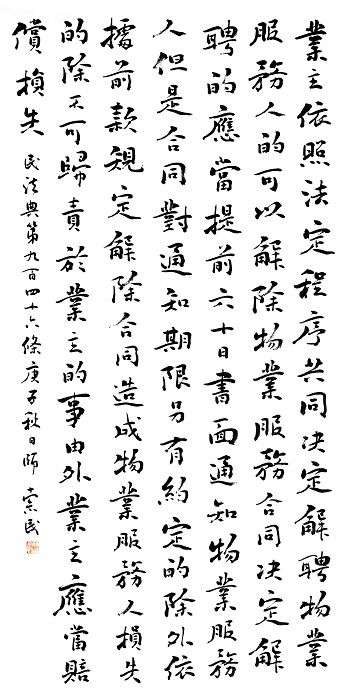 業主依照法定程序共同決定解聘物業
服務人的可以解除物業服務合同決定解
聘的應當提前六十日書面通知物業服務
人但是合同對通知期限另有約定的除外依
據前款規定解除合同造成物業服務人損失
的除不可歸責於業主的事由外業主應當賠
償損失
民法典第九百四十六條庚子秋日師崇民